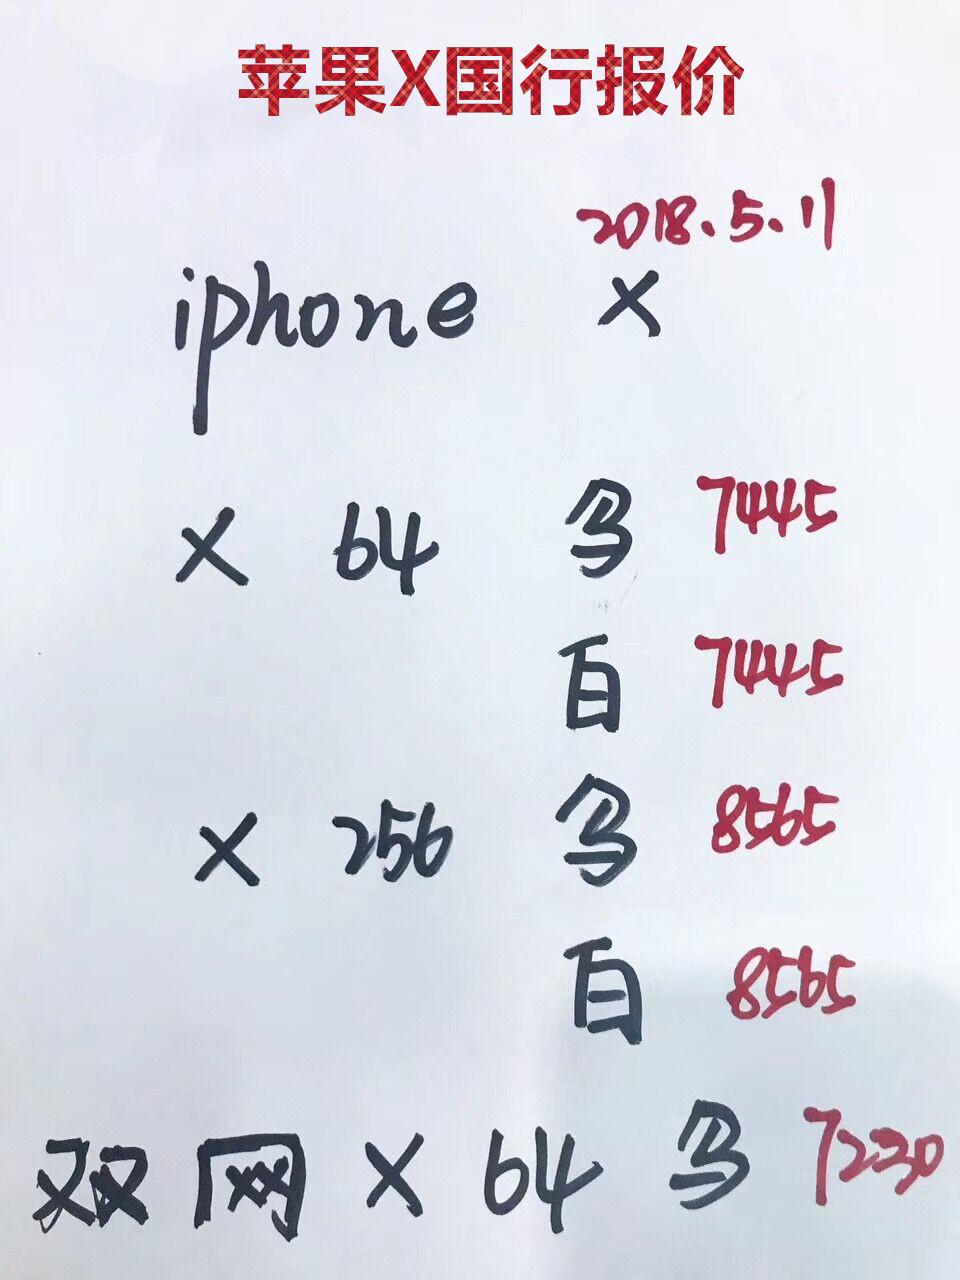 苹果X国行报价
2018.5.11
iphone X
X 64 乌 7445
白 7445
X 256 乌 8565
白 8565
双网 X 64 乌 7230